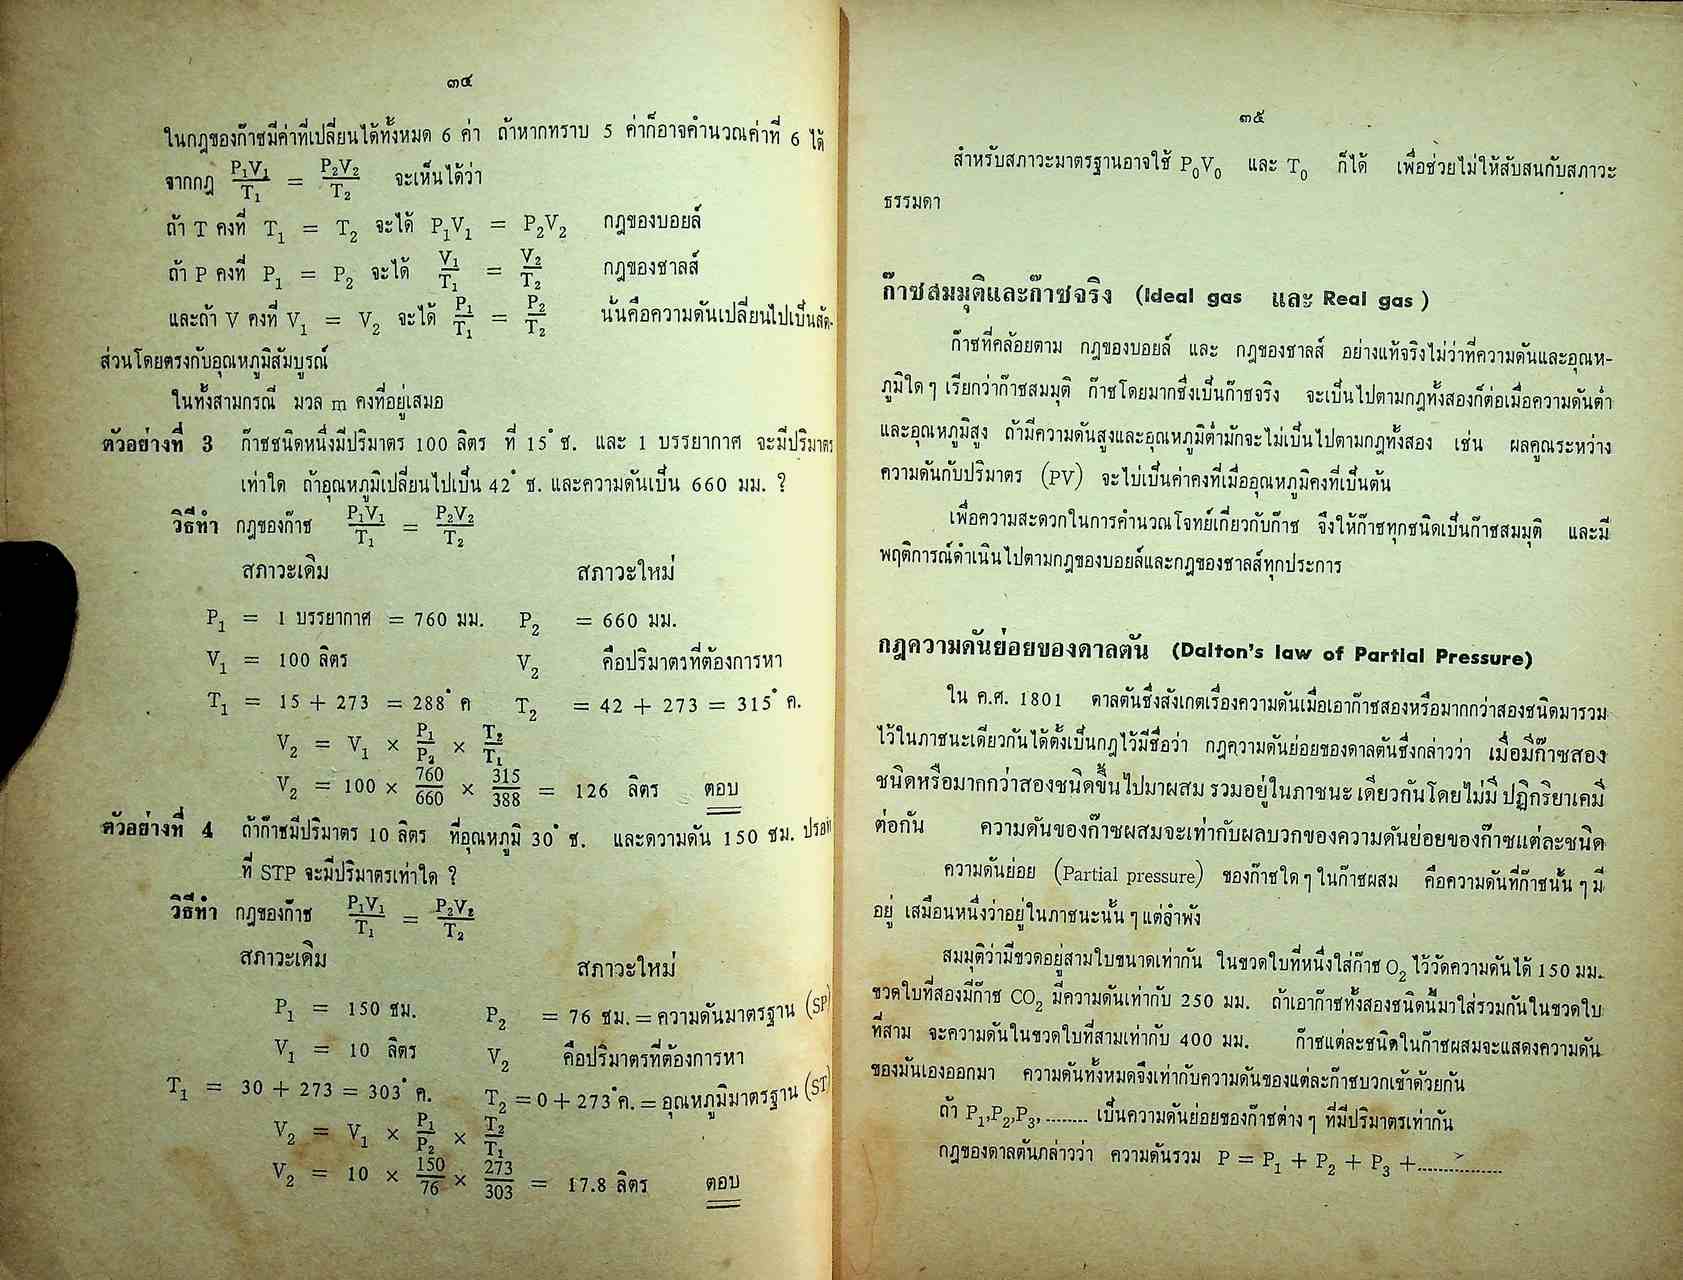 ๓๔
ในกฎของก๊าซมีค่าที่เปลี่ยนได้ทั้งหมด 6 ค่า ถ้าหากทราบ 5 ค่าก็อาจคำนวณค่าที่ 6 ได้
จากกฎ P₁V₁/T₁ = P₂V₂/T₂ จะเห็นได้ว่า
ถ้า T คงที่ T₁ = T₂ จะได้ P₁V₁ = P₂V₂ กฎของบอยล์
ถ้า P คงที่ P₁ = P₂ จะได้ V₁/T₁ = V₂/T₂ กฎของชาลส์
และถ้า V คงที่ V₁ = V₂ จะได้ P₁/T₁ = P₂/T₂ นั้นคือความดันเปลี่ยนไปเป็นสัด-
ส่วนโดยตรงกับอุณหภูมิสัมบูรณ์
ในทั้งสามกรณี มวล m คงที่อยู่เสมอ
ตัวอย่างที่ 3 ก๊าซชนิดหนึ่งมีปริมาตร 100 ลิตร ที่ 15° ซ. และ 1 บรรยากาศ จะมีปริมาตร
เท่าใด ถ้าอุณหภูมิเปลี่ยนไปเป็น 42° ซ. และความดันเป็น 660 มม. ?
วิธีทำ กฎของก๊าซ P₁V₁/T₁ = P₂V₂/T₂
สภาวะเดิม สภาวะใหม่
P₁ = 1 บรรยากาศ = 760 มม. P₂ = 660 มม.
V₁ = 100 ลิตร V₂ คือปริมาตรที่ต้องการหา
T₁ = 15 + 273 = 288° ค T₂ = 42 + 273 = 315° ค.
V₂ = V₁ × P₁/P₂ × T₂/T₁
V₂ = 100 × 760/660 × 315/388 = 126 ลิตร ตอบ
ตัวอย่างที่ 4 ถ้าก๊าซมีปริมาตร 10 ลิตร ที่อุณหภูมิ 30° ซ. และความดัน 150 ซม. ปรอท
ที่ STP จะมีปริมาตรเท่าใด ?
วิธีทำ กฎของก๊าซ P₁V₁/T₁ = P₂V₂/T₂
สภาวะเดิม สภาวะใหม่
P₁ = 150 ซม. P₂ = 76 ซม. = ความดันมาตรฐาน (SP)
V₁ = 10 ลิตร V₂ คือปริมาตรที่ต้องการหา
T₁ = 30 + 273 = 303° ค. T₂ = 0 + 273° ค. = อุณหภูมิมาตรฐาน (ST)
V₂ = V₁ × P₁/P₂ × T₂/T₁
V₂ = 10 × 150/76 × 273/303 = 17.8 ลิตร ตอบ
๓๕
สำหรับสภาวะมาตรฐานอาจใช้ P₀V₀ และ T₀ ก็ได้ เพื่อช่วยไม่ให้สับสนกับสภาวะ
ธรรมดา
ก๊าซสมมุติและก๊าซจริง (Ideal gas และ Real gas)
ก๊าซที่คล้อยตาม กฎของบอยล์ และ กฎของชาลส์ อย่างแท้จริงไม่ว่าที่ความดันและอุณห-
ภูมิใด ๆ เรียกว่าก๊าซสมมุติ ก๊าซโดยมากซึ่งเป็นก๊าซจริง จะเป็นไปตามกฎทั้งสองก็ต่อเมื่อความดันต่ำ
และอุณหภูมิสูง ถ้ามีความดันสูงและอุณหภูมิต่ำมักจะไม่เป็นไปตามกฎทั้งสอง เช่น ผลคูณระหว่าง
ความดันกับปริมาตร (PV) จะไม่เป็นค่าคงที่เมื่ออุณหภูมิคงที่เป็นต้น
เพื่อความสะดวกในการคำนวณโจทย์เกี่ยวกับก๊าซ จึงให้ก๊าซทุกชนิดเป็นก๊าซสมมุติ และมี
พฤติการณ์ดำเนินไปตามกฎของบอยล์และกฎของชาลส์ทุกประการ
กฎความดันย่อยของดาลตัน (Dalton's law of Partial Pressure)
ใน ค.ศ. 1801 ดาลตันซึ่งสังเกตเรื่องความดันเมื่อเอาก๊าซสองหรือมากกว่าสองชนิดมารวม
ไว้ในภาชนะเดียวกันได้ตั้งเป็นกฎไว้มีชื่อว่า กฎความดันย่อยของดาลตันซึ่งกล่าวว่า เมื่อมีก๊าซสอง
ชนิดหรือมากกว่าสองชนิดขึ้นไปมาผสม รวมอยู่ในภาชนะ เดียวกันโดยไม่มี ปฏิกริยาเคมี
ต่อกัน ความดันของก๊าซผสมจะเท่ากับผลบวกของความดันย่อยของก๊าซแต่ละชนิด
ความดันย่อย (Partial pressure) ของก๊าซใด ๆ ในก๊าซผสม คือความดันที่ก๊าซนั้น ๆ มี
อยู่ เสมือนหนึ่งว่าอยู่ในภาชนะนั้น ๆ แต่ลำพัง
สมมุติว่ามีขวดอยู่สามใบขนาดเท่ากัน ในขวดใบที่หนึ่งใส่ก๊าซ O₂ ไว้วัดความดันได้ 150 มม.
ขวดใบที่สองมีก๊าซ CO₂ มีความดันเท่ากับ 250 มม. ถ้าเอาก๊าซทั้งสองชนิดนี้มาใส่รวมกันในขวดใบ
ที่สาม จะความดันในขวดใบที่สามเท่ากับ 400 มม. ก๊าซแต่ละชนิดในก๊าซผสมจะแสดงความดัน
ของมันเองออกมา ความดันทั้งหมดจึงเท่ากับความดันของแต่ละก๊าซบวกเข้าด้วยกัน
ถ้า P₁,P₂,P₃, ........ เป็นความดันย่อยของก๊าซต่าง ๆ ที่มีปริมาตรเท่ากัน
กฎของดาลตันกล่าวว่า ความดันรวม P = P₁ + P₂ + P₃ + ................